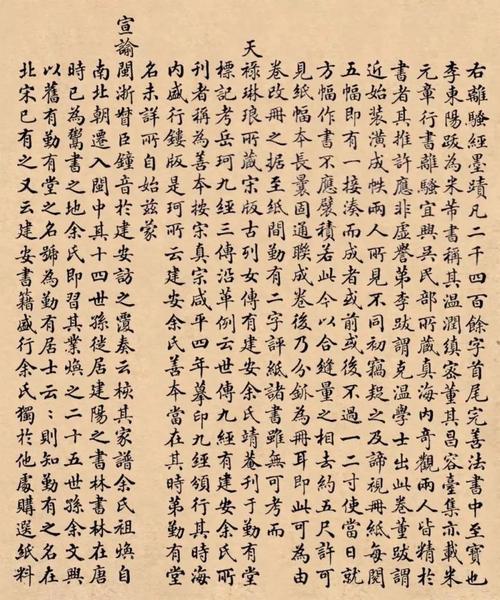 右離騷經墨蹟凡二千四百餘字首尾完善法書中至寶
李東陽跋為米芾書稱其温潤縝密董其昌容臺集亦載米
元章行書離騷宜興吳民部所藏真海内奇觀兩人皆精於
書者其推許應非虛譽第李跋謂克温學士出此卷董跋謂
近始裝潢成帙兩人所見不同初竊疑之及諦視冊紙每閱
五幅即有一接湊而成者或前或後不過一二寸使當日就
方幅作書不應襞積若此今以合縫量之相去約五尺許可
見紙幅本長曩固通聯成卷後乃分鉌為冊耳即此可為由
卷改冊之據至紙間勤有二字評紙諸書雖無可考而
天祿琳琅所藏宋版古列女傳有建安余氏靖菴刊于勤有堂
標記考岳珂九經三傳沿革例云世傳九經有建安余氏所
刊者稱為善本按宋真宗咸平四年摹印九經頒行其時海
内盛行鏤版是珂所云建安余氏善本當在其時第勤有堂
名未詳所自始兹蒙
宣諭閩浙督臣鐘音於建安訪之覆奏云梜其家譜余氏祖煥自
南北朝遷入閩中其十四世孫徙居建陽之書林書林在唐
時已為鬻書之地余氏即習其業煥之二十五世孫余文興
以舊有勤有堂之名號為勤有居士云〻則知勤有之名在
北宋已有之又云建安書籍盛行余氏獨於他處購選紙料